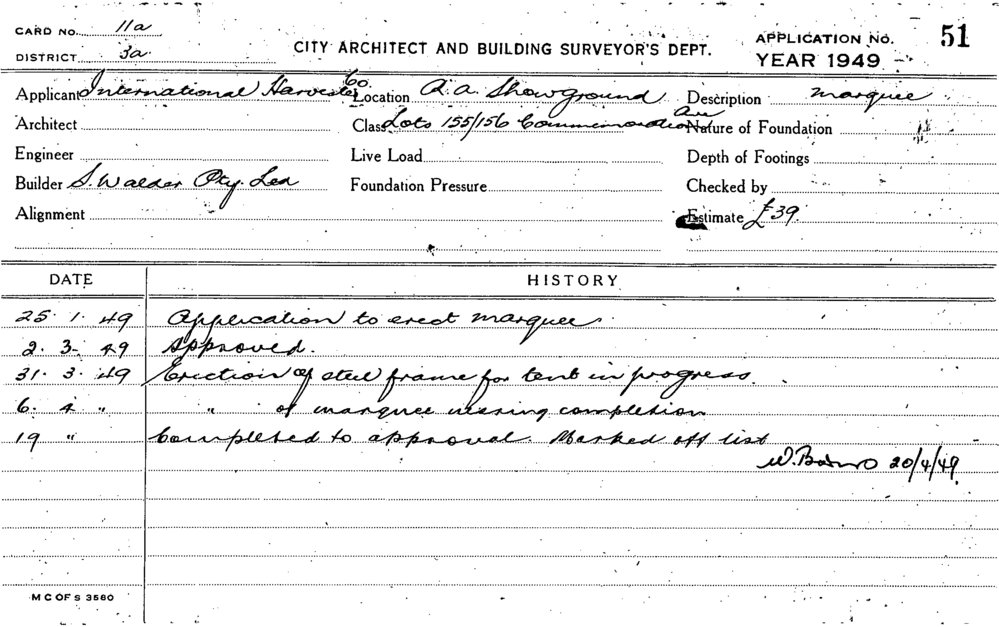 CARD No. 11a
DISTRICT 3a
CITY ARCHITECT AND BUILDING SURVEYOR'S DEPT.
APPLICATION No. 51
YEAR 1949
Applicant International Harvester Co. Location R.A. Showground Description marquee
Architect Class Lots 155/156 Commemoration Ave Nature of Foundation
Engineer Live Load Depth of Footings
Builder S. Walder Pty. Led Foundation Pressure Checked by
Alignment Estimate £39
DATE HISTORY
25. 1. 49 Application to erect marquee.
2. 3. 49 Approved.
31. 3. 49 Erection of steel frame for tent in progress.
6. 4 " " of marquee nearing completion
19 " Completed to approval. Marked off list
W. 20/4/49
M C OF S 3580